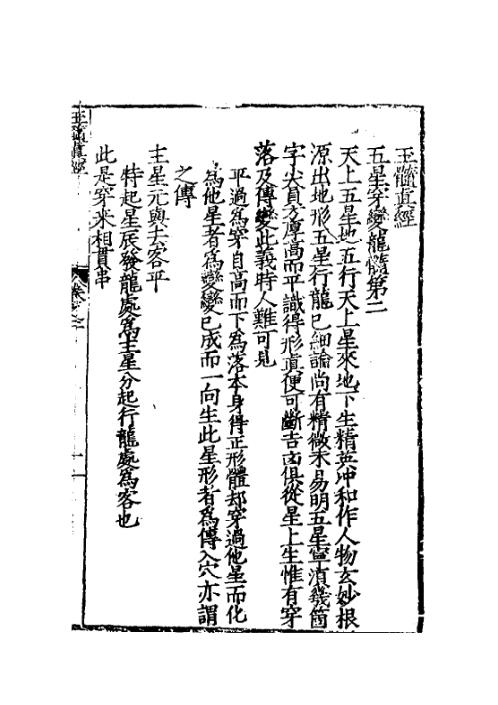 玉髓真經
五星穿變龍髓第二
天上五星地五行天上星來地下生精英沖和作人物玄妙根
源出地形五星行龍已細論尚有精微未易明五星寧須幾箇
字尖員方厚高而平識得形真便可斷吉凶俱從星上生惟有穿
落及傳變此義時人難可見
平過為穿自高而下為落本身得正形體却穿過他星而化
為他星者為變變已成而一向生此星形者為傳入穴亦謂
之傳
主星元與去客平
特起星辰發龍處為主星分起行龍處為客也
此是穿來相貫串
玉髓真經